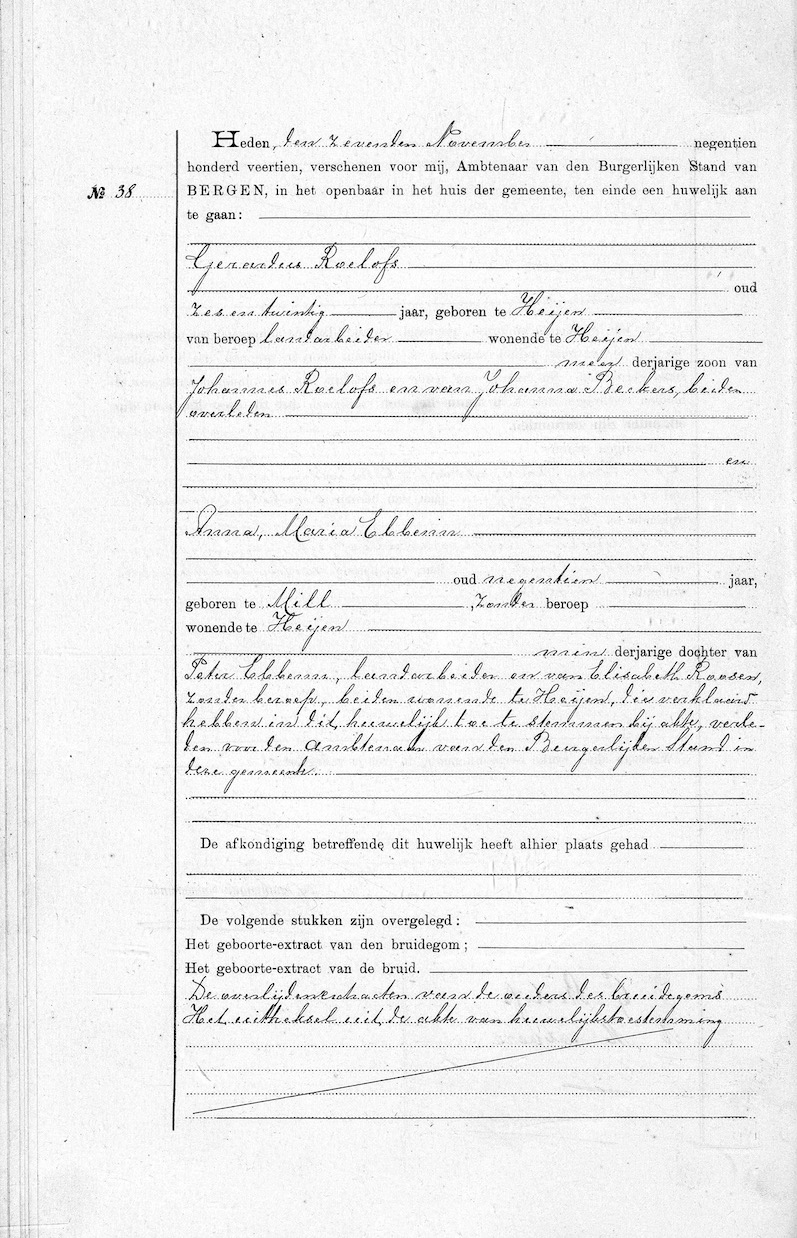 Heden, den zevenden November negentien
honderd veertien, verschenen voor mij, Ambtenaar van den Burgerlijken Stand van
№ 38
BERGEN, in het openbaar in het huis der gemeente, ten einde een huwelijk aan
te gaan:
Gerardus Roelofs
oud
zes en twintig jaar, geboren te Heijen
van beroep landarbeider wonende te Heijen
meer derjarige zoon van
Johannes Roelofs en van Johanna Beckers, beiden
overleden
en
Anna, Maria Ebbenn
oud negentien jaar,
geboren te Mill, zonder beroep
wonende te Heijen
min derjarige dochter van
Peter Ebbenn, landarbeider en van Elisabeth Roosen,
zonder beroep, beiden wonende te Heijen, die verklaard
hebben in dit huwelijk toe te stemmen bij akte, verle-
den voor den Ambtenaar van den Burgerlijken Stand in
deze gemeente.
De afkondiging betreffende dit huwelijk heeft alhier plaats gehad
De volgende stukken zijn overgelegd:
Het geboorte-extract van den bruidegom;
Het geboorte-extract van de bruid.
De overlijdenextracten van de ouders des bruidegoms
Het uittreksel uit de akte van huwelijkstoestemming